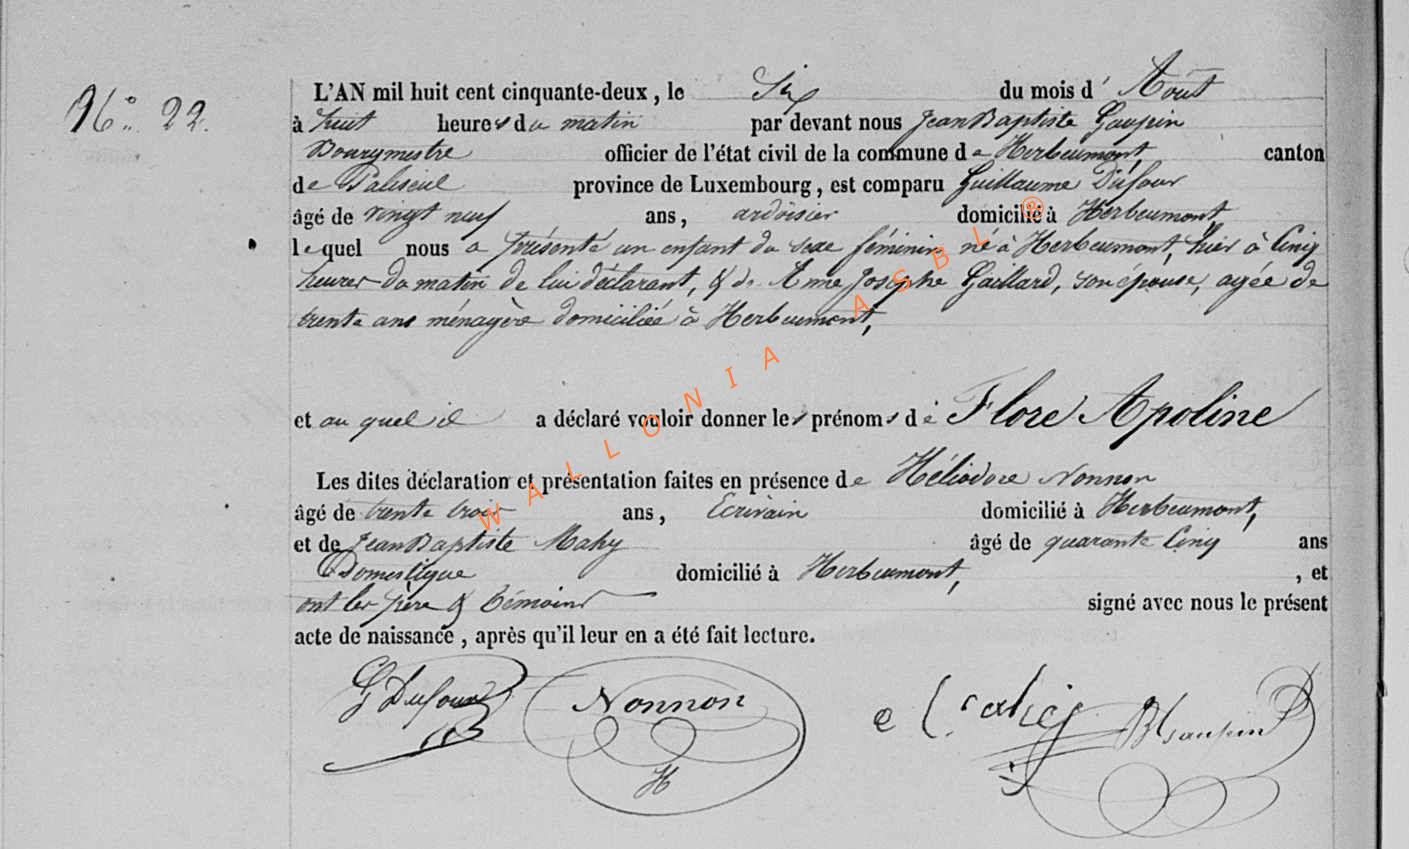 N° 22.
L'AN mil huit cent cinquante-deux, le Six du mois d' Août
à huit heures du matin par devant nous Jean Baptiste Gaupin
Bourgmestre officier de l'état civil de la commune de Herbeumont, canton
de Paliseul province de Luxembourg, est comparu Guillaume Dufour
âgé de vingt neuf ans, ardoisier domicilié à Herbeumont
lequel nous a présenté un enfant du sexe féminin né à Herbeumont, hier à Cinq
heures du matin de lui déclarant, & de Anne Josephe Gaillard, son épouse, agée de
trente ans ménagère domiciliée à Herbeumont,
et au quel il a déclaré vouloir donner les prénoms de Flore Apoline
Les dites déclaration et présentation faites en présence de Héliodore Nonnon
âgé de trente trois ans, Ecrivain domicilié à Herbeumont,
et de Jean Baptiste Mahy âgé de quarante Cinq ans
Domestique domicilié à Herbeumont, , et
ont les père & témoins signé avec nous le présent
acte de naissance, après qu'il leur en a été fait lecture.
G Dufour Nonnon H
WALLONIA ASBL ®